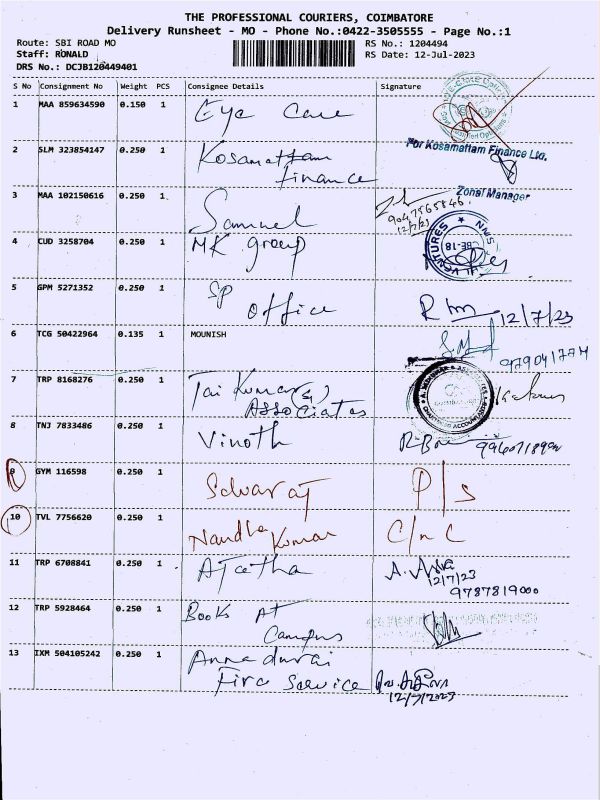 THE PROFESSIONAL COURIERS, COIMBATORE
Delivery Runsheet - MO - Phone No.:0422-3505555 - Page No.:1
Route: SBI ROAD MO RS No.: 1204494
Staff: RONALD RS Date: 12-Jul-2023
DRS No.: DCJB120449401
S No Consignment No Weight PCS Consignee Details Signature
1 MAA 859634590 0.150 1 Eye Care
2 SLM 323854147 0.250 1 Kosamattam
Finance
For Kosamattam Finance Ltd.
Zonal Manager
3 MAA 102150616 0.250 1 Samuel
9047565846
12/7/23
4 CUD 3258704 0.250 1 MK group
VENTURES
CBE-18
5 GPM 5271352 0.250 1 SP office
12/7/23
6 TCG 50422964 0.135 1 MOUNISH
7 TRP 8168276 0.250 1 Jai Kumar
Associates
CHARTERED ACCOUNTANTS
8 TNJ 7833486 0.250 1 Vinoth
9 GYM 116598 0.250 1 Selvaraj P/s
10 TVL 7756620 0.250 1 Nandha Kumar C/nC
11 TRP 6708841 0.250 1 Ajatha
12/7/23
9787819000
12 TRP 5928464 0.250 1 Books At
Campus
13 IXM 504105242 0.250 1 Annadurai
Fire Service
12/7/2023